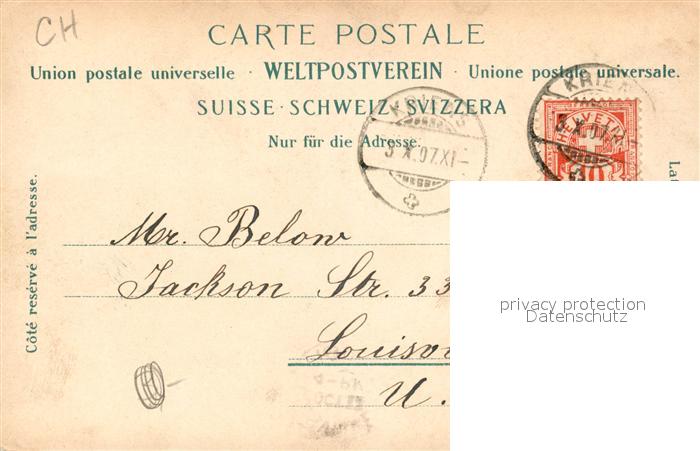 CH
CARTE POSTALE
Union postale universelle · WELTPOSTVEREIN · Unione postale universale.
SUISSE · SCHWEIZ · SVIZZERA
Nur für die Adresse.
3 X.07.XI-
HELVETIA
10
Côté reservé à l'adresse.
Mr. Below
Jackson Str. 33
Louisv
U.
privacy protection
Datenschutz